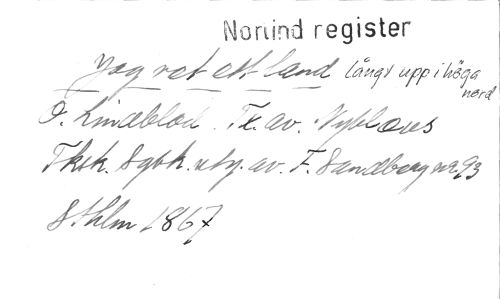 Norlind register
Jag vet ett land långt upp i höga
nord
O. Lindblad. Tx. av. Nyblæus
Tksk. Sgbk. utg. av. F. Sandberg nr. 93
Sthlm 1867